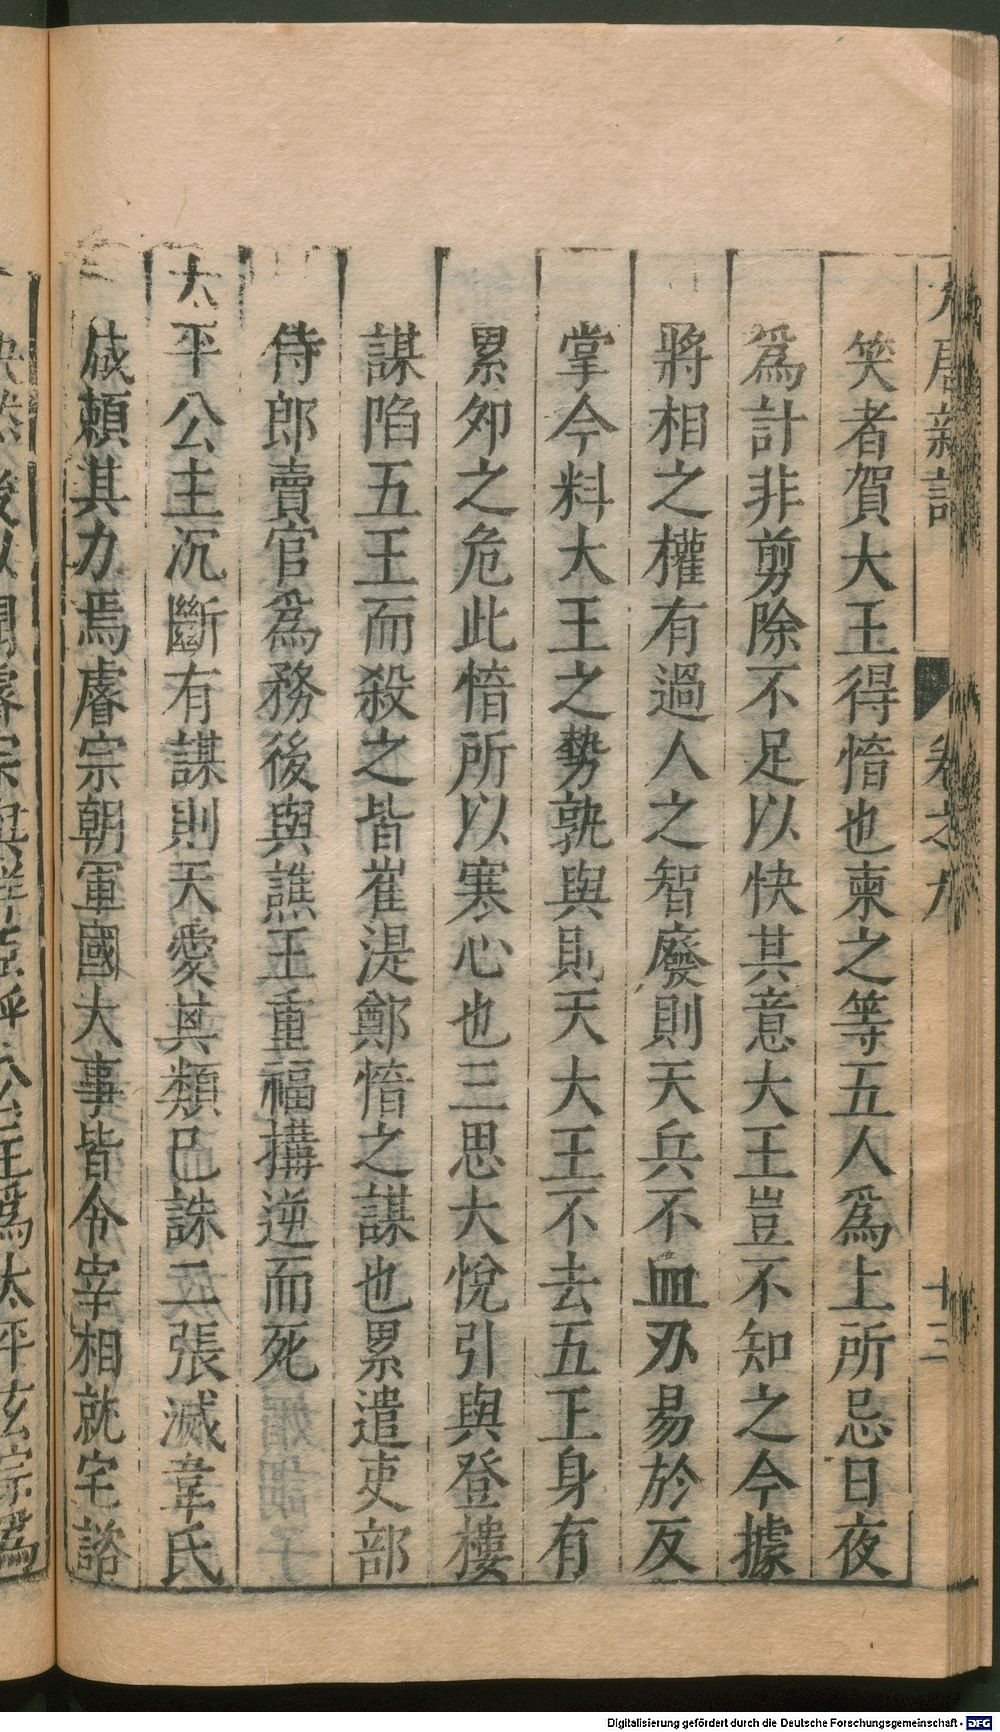 大唐新語 卷之九 十三
笑者賀大王得愔也柬之等五人爲上所忌日夜
爲計非剪除不足以快其意大王豈不知之今據
將相之權有過人之智廢則天兵不血刃易於反
掌今料大王之勢孰與則天大王不去五王身有
累卵之危此愔所以寒心也三思大悅引與登樓
謀陷五王而殺之皆崔湜鄭愔之謀也累遣吏部
侍郎賣官爲務後與譙王重福搆逆而死
太平公主沉斷有謀則天愛其類已誅二張滅韋氏
咸頼其力焉睿宗朝軍國大事皆令宰相就宅諮
決然後以聞睿宗與羣臣呼公主爲太平玄宗爲
Digitalisierung gefördert durch die Deutsche Forschungsgemeinschaft - DFG